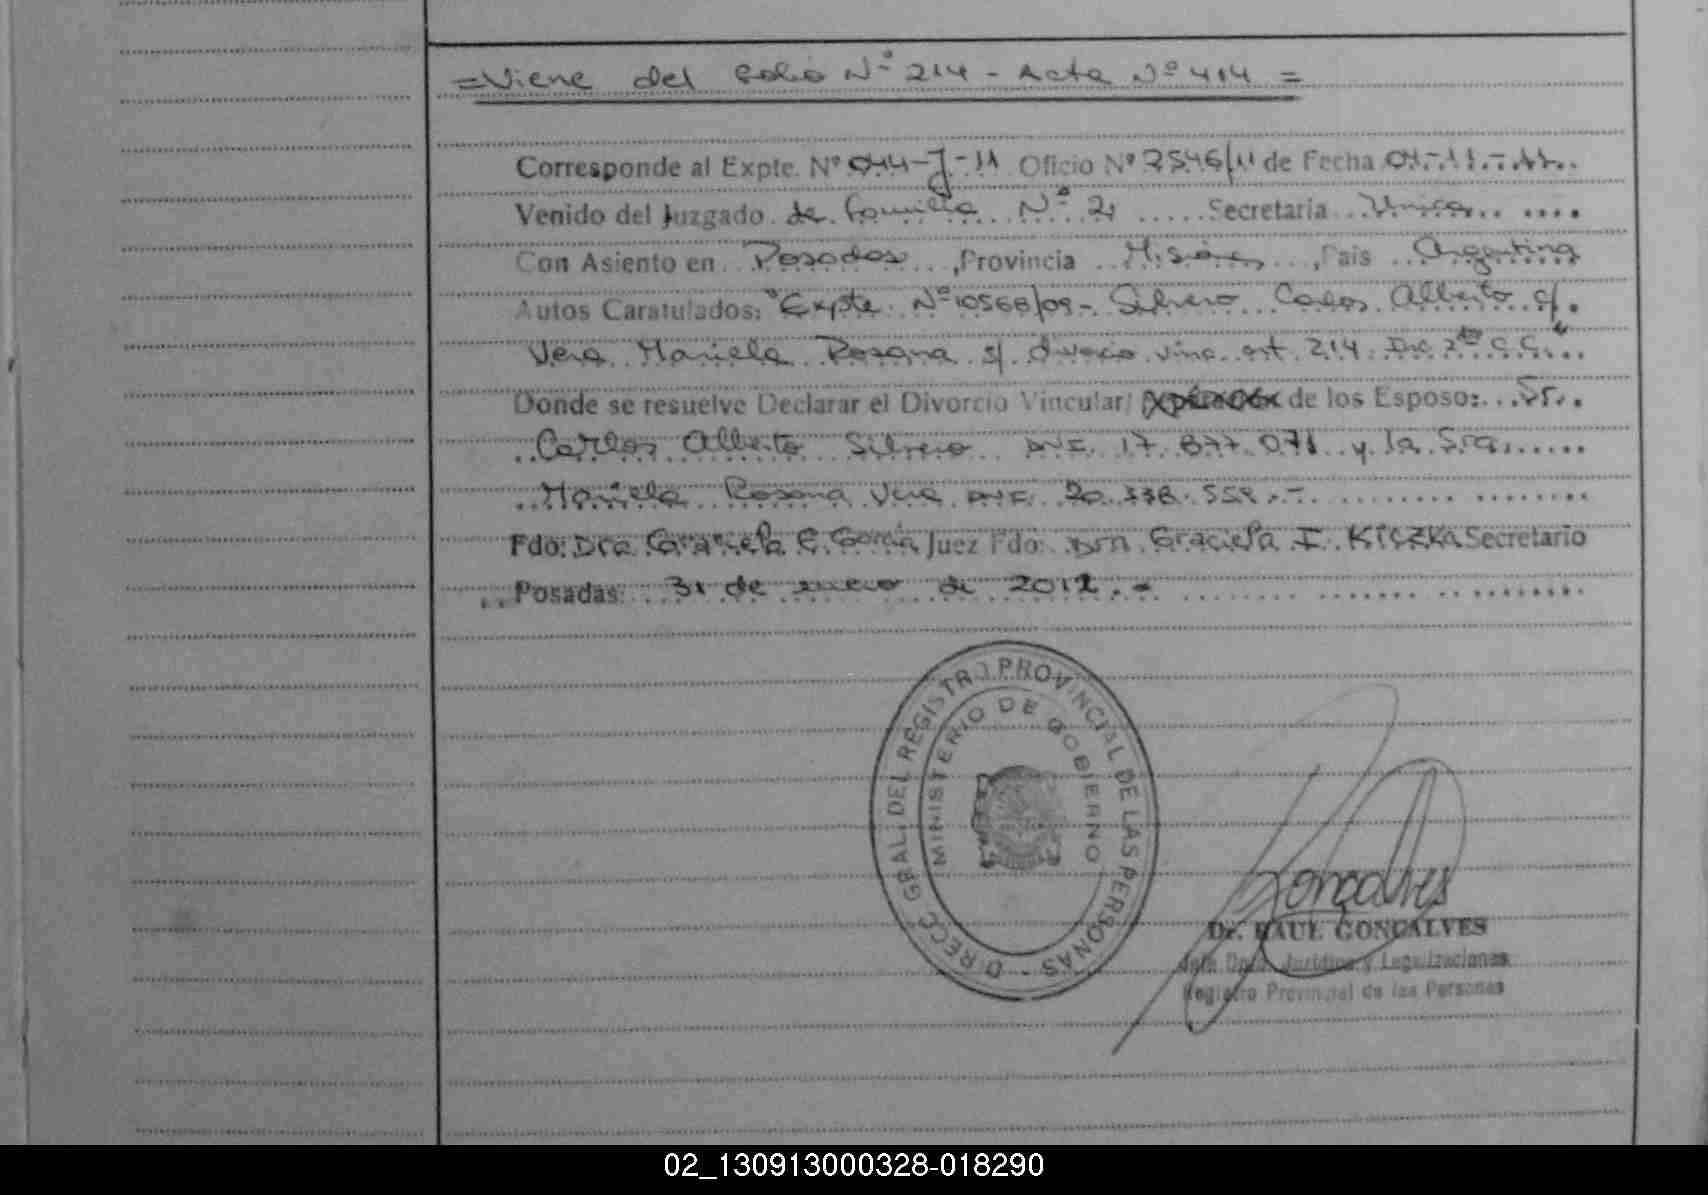 =Viene del Folio Nº 214 - Acta Nº 414 =
Corresponde al Expte. Nº 044-J-11 Oficio Nº 2546/11 de Fecha 04-11-11..
Venido del Juzgado de Familia Nº 2, Secretaria Unica
Con Asiento en Posadas, Provincia Misiones, Pais Argentina
Autos Caratulados: "Expte. Nº 10568/09 - Silvero Carlos Alberto c/.
Vera Mariela Rosana s/ divorcio vinc. art. 214 Inc 2do C.C."
Donde se resuelve Declarar el Divorcio Vincular/ de los Esposo: Sr.
Carlos Alberto Silvero DNI. 17.877.071 y la Sra.
Mariela Rosana Vera DNI. 20.338.559.-
Fdo: Dra. E. García Juez Fdo: Dra. Graciela I. Kiczka Secretario
Posadas: 31 de enero de 2012.-
DIRECC. GRAL. DEL REGISTRO PROVINCIAL DE LAS PERSONAS -
MINISTERIO DE GOBIERNO
Gonçalves
Dr. RAUL GONÇALVES
Jefe Dpto. Jurídico y Legalizaciones
Registro Provincial de las Personas
02_130913000328-018290